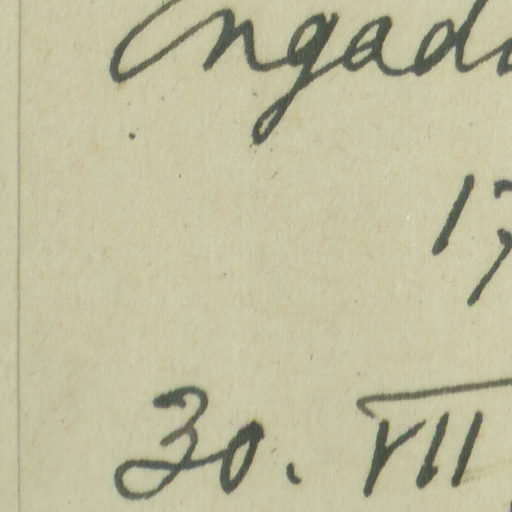 Engad
17
30. VII